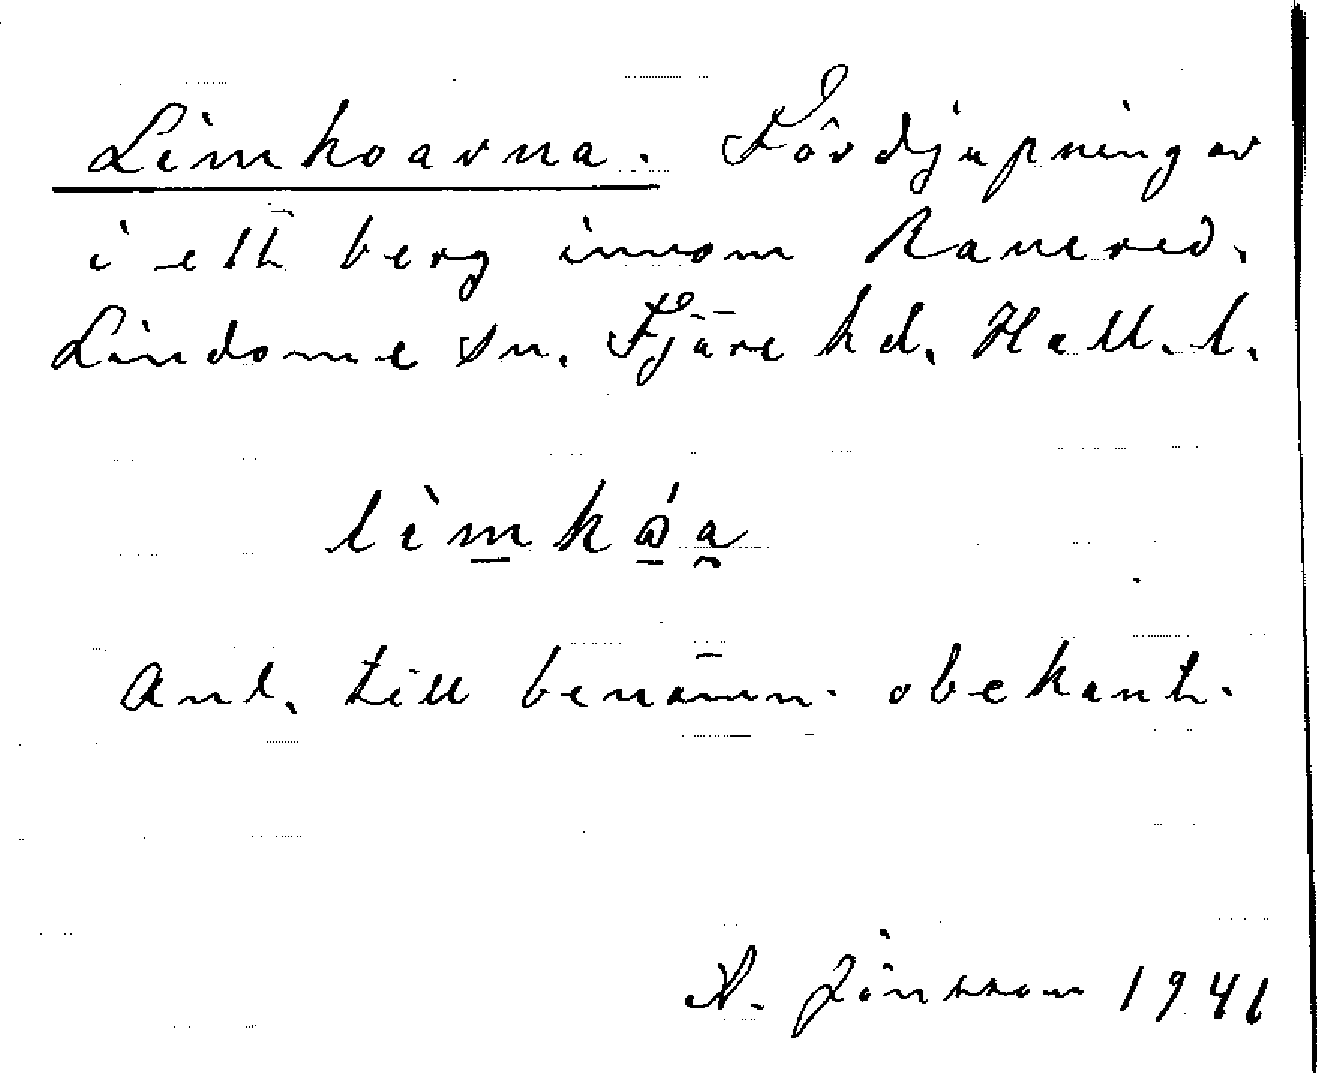 Limhoarna. Fördjupningar
i ett berg innom Ranered.
Lindome sn. Fjäre hd. Hall. l.
Anl. till benämn. obekant.
A. Jönsson 1941